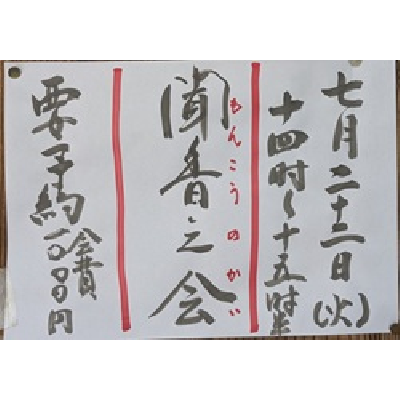 七月二十三日(火)
十四时〜十五时半
もんこうのかい
聞香之会
要予約
会費一〇〇〇円